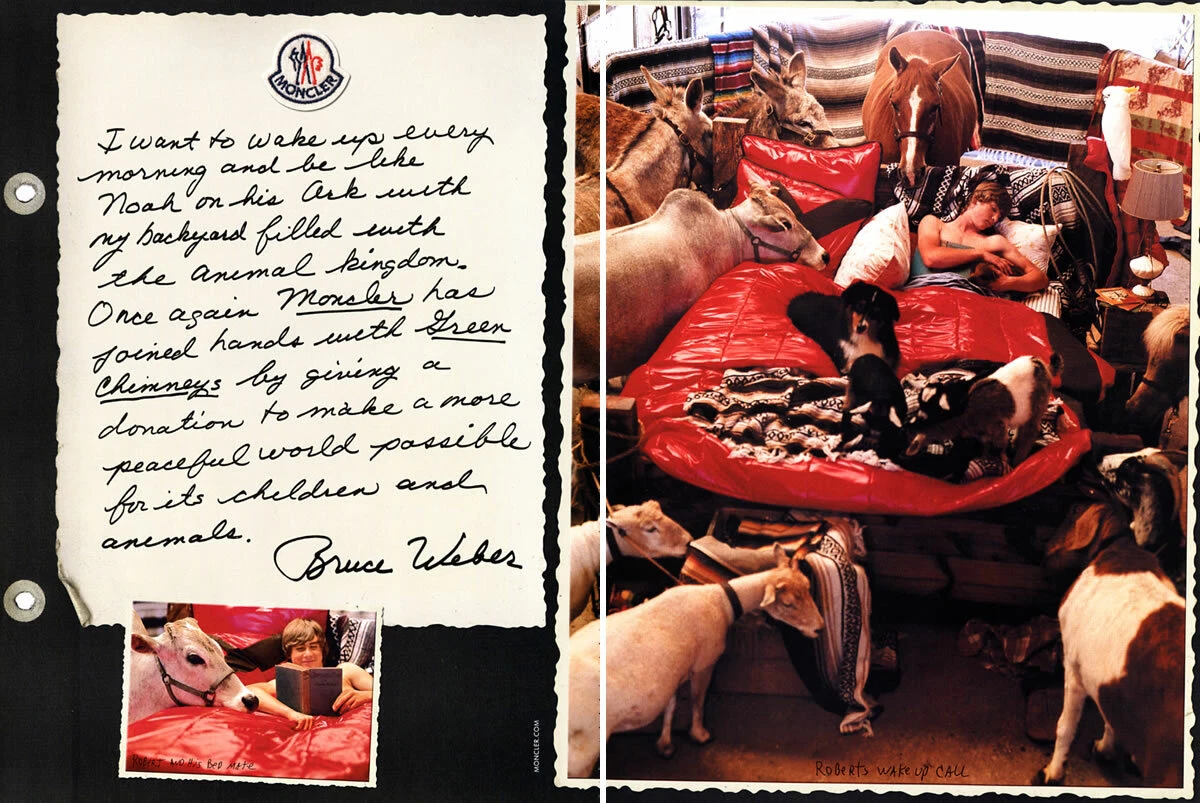 MONCLER
I want to wake up every
morning and be like
Noah on his Ark with
my backyard filled with
the animal kingdom.
Once again Monsler has
joined hands with Green
Chimneys by giving a
donation to make a more
peaceful world possible
for its children and
animals.
Bruce Weber
ROBERT AND HIS BED MATE
MONCLER.COM
ROBERTS WAKE UP CALL